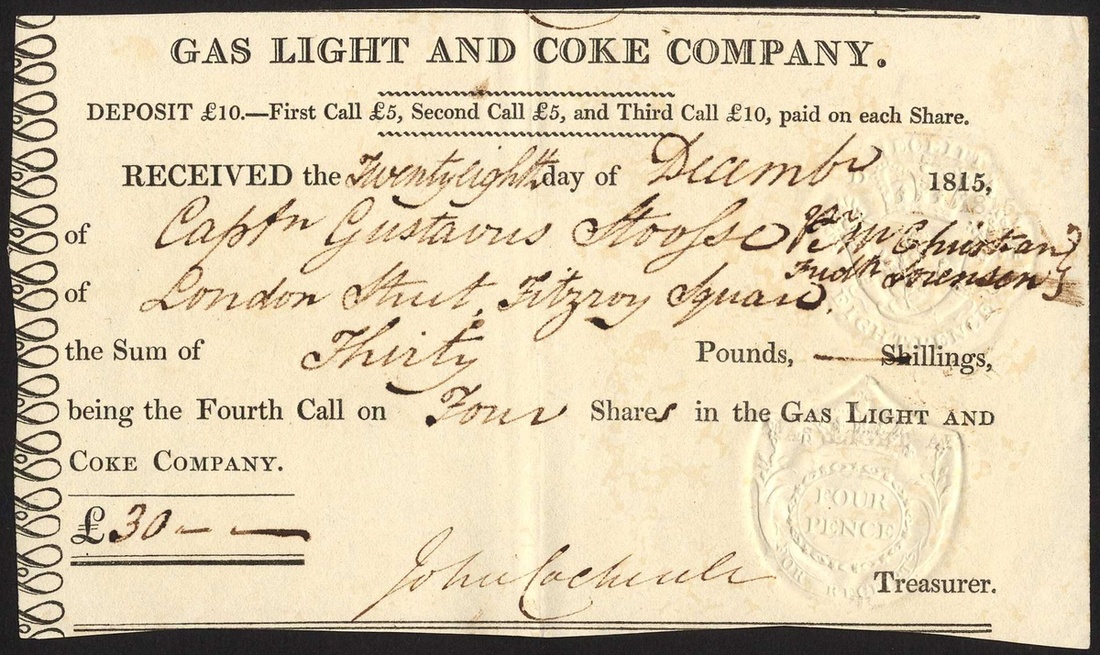 GAS LIGHT AND COKE COMPANY.
DEPOSIT £10.—First Call £5, Second Call £5, and Third Call £10, paid on each Share.
RECEIVED the Twentyeighth day of Decembr 1815,
of Captn Gustavus Pr Mr Christian
Fredk Sorensen
of London Street, Fitzroy Square.
the Sum of Thirty Pounds, — Shillings,
being the Fourth Call on Four Shares in the GAS LIGHT AND
COKE COMPANY.
£30 — —
John Treasurer.
EIGHTPENCE
FOUR
PENCE